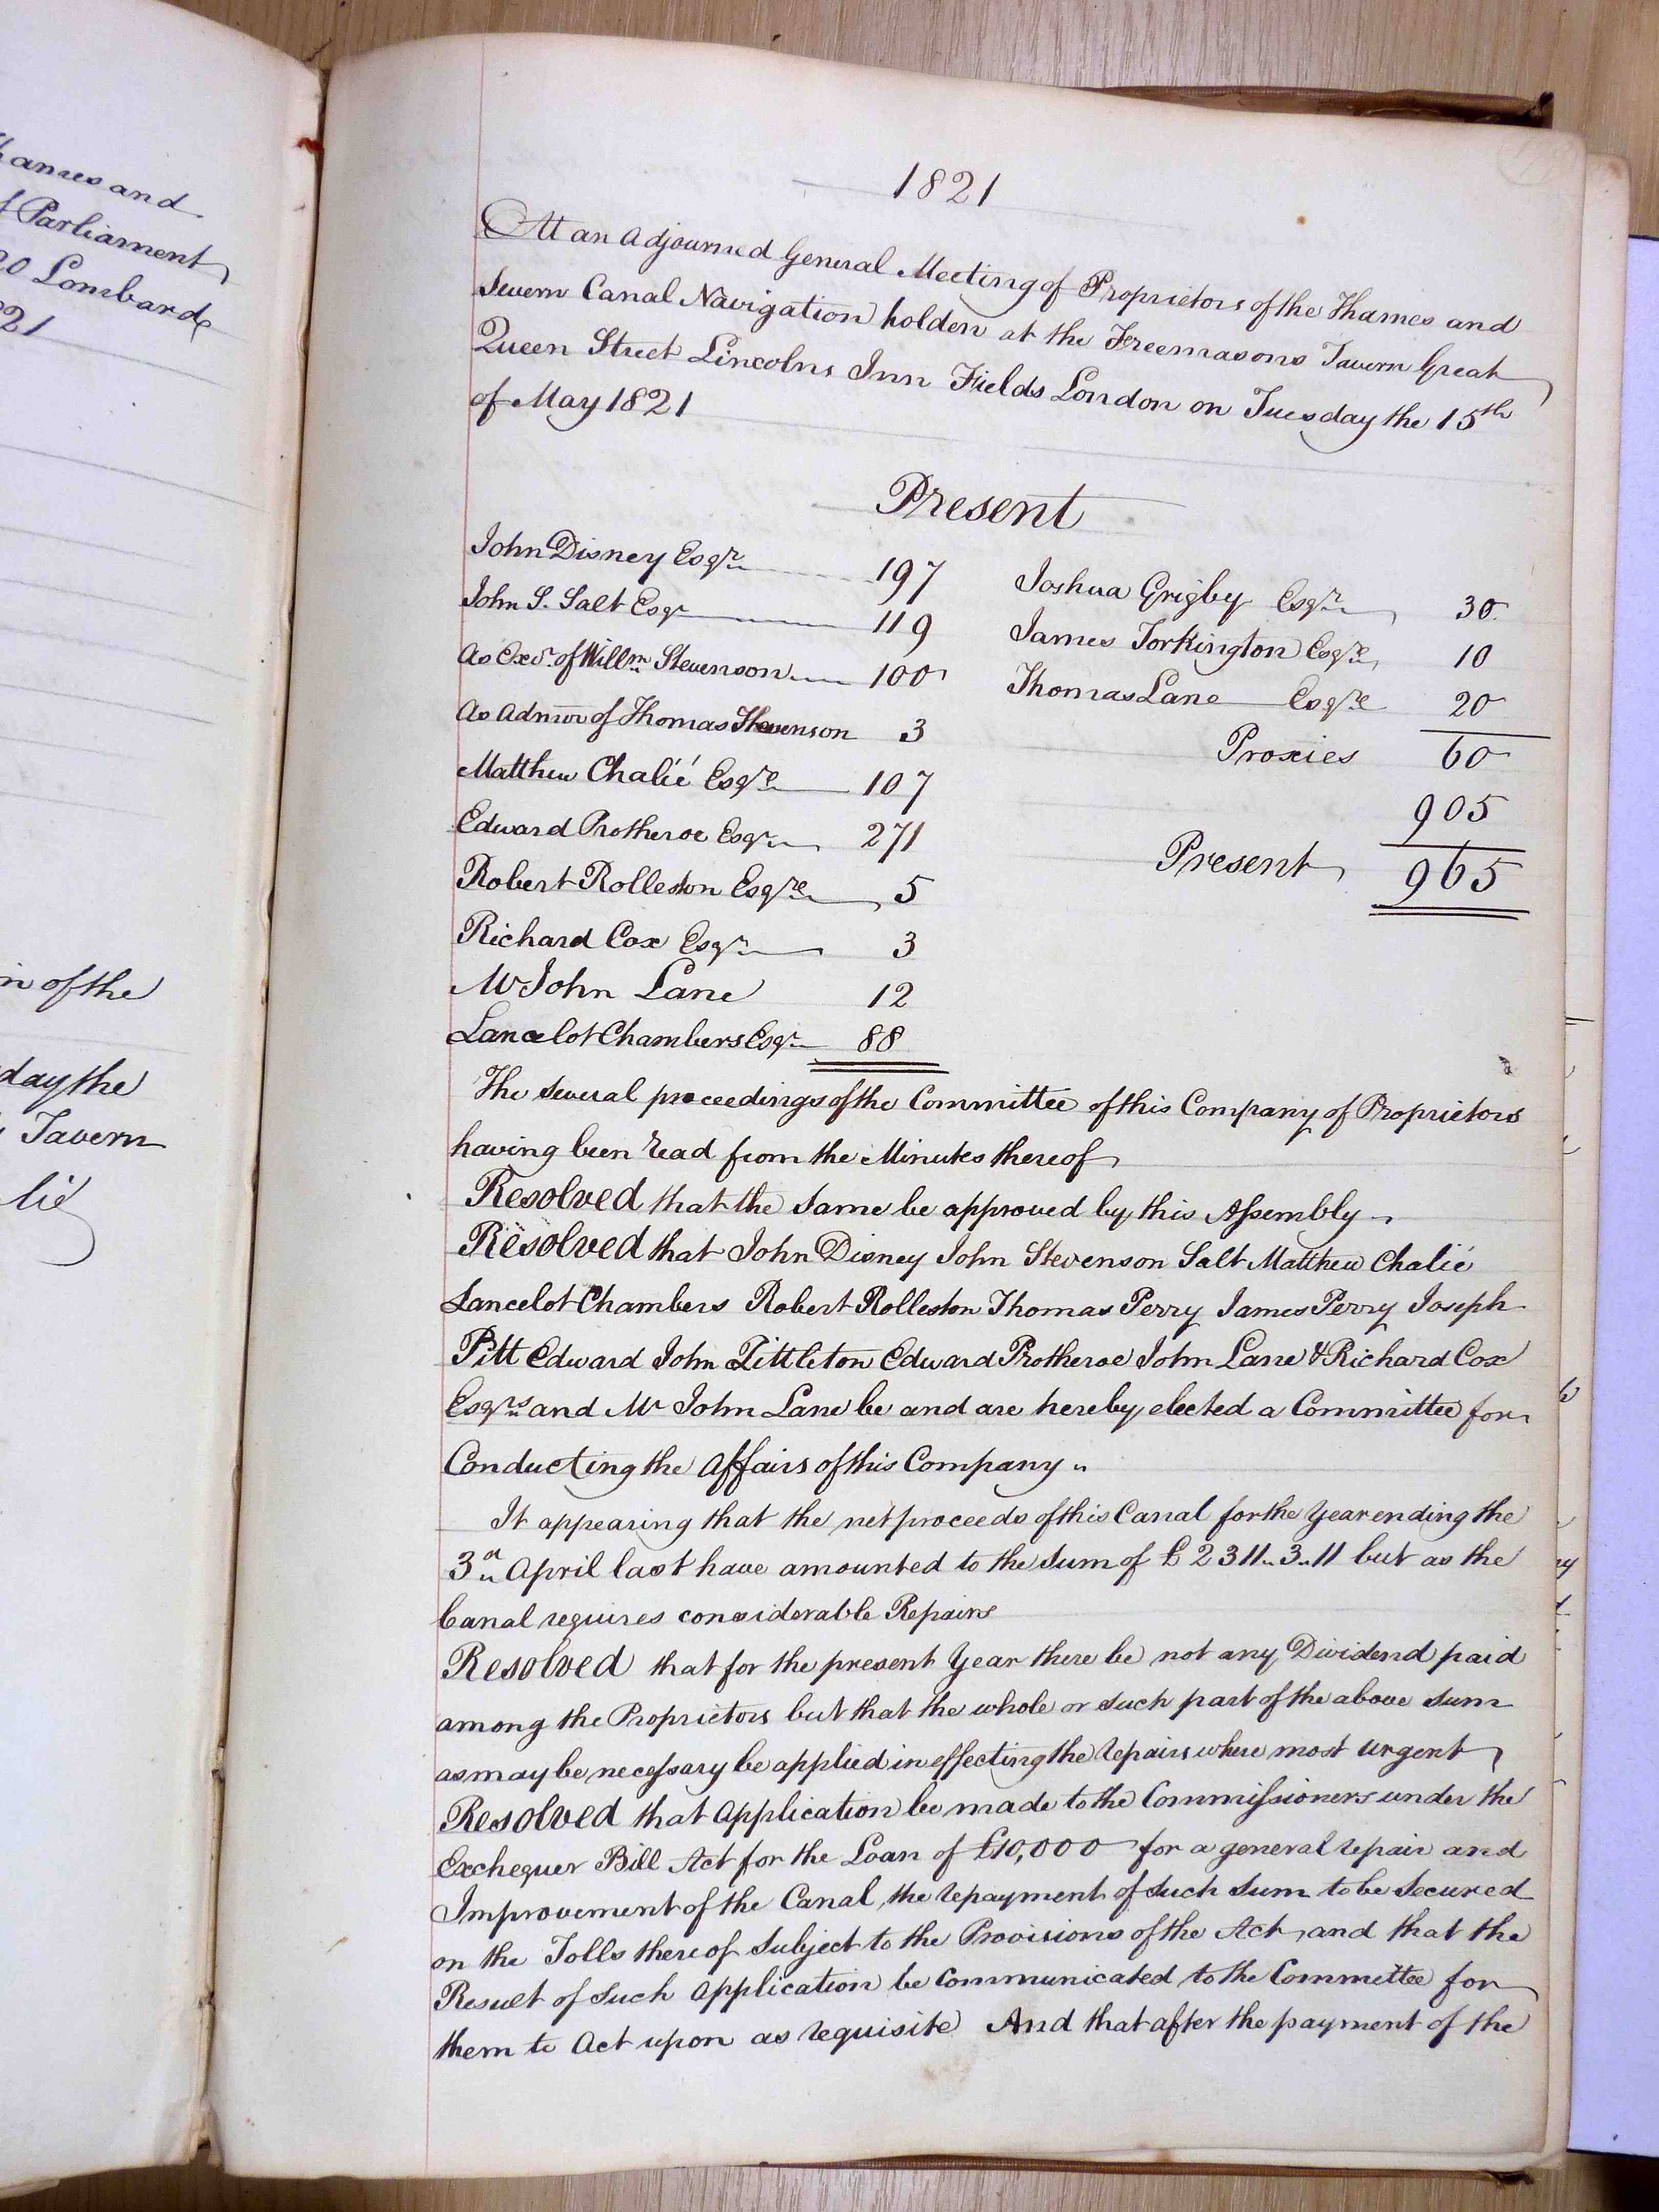 hames and
f Parliament
20 Lombard
21
n of the
day the
Tavern
lié
1821
At an Adjourned General Meeting of Proprietors of the Thames and
Severn Canal Navigation holden at the Freemasons Tavern Great
Queen Street Lincolns Inn Fields London on Tuesday the 15th
of May 1821
Present
John Disney Esqr 197
John S. Salt Esqr 119
As Exor. of Willm Stevenson 100
As Admor of Thomas Stevenson 3
Matthew Chalié Esqre 107
Edward Protheroe Esqr 271
Robert Rolleston Esqre 5
Richard Cox Esqr 3
Mr John Lane 12
Lancelot Chambers Esqr 88
Joshua Grigby Esqr 30
James Torkington Esqre 10
Thomas Lane Esqre 20
Proxies 60
905
Present 965
The several proceedings of the Committee of this Company of Proprietors
having been read from the Minutes thereof
Resolved that the same be approved by this Assembly
Resolved that John Disney John Stevenson Salt Matthew Chalié
Lancelot Chambers Robert Rolleston Thomas Perry James Perry Joseph
Pitt Edward John Littleton Edward Protheroe John Lane & Richard Cox
Esqrs and Mr John Lane be and are hereby elected a Committee for
Conducting the Affairs of this Company
It appearing that the net proceeds of this Canal for the Year ending the
3d April last have amounted to the sum of £2311.. 3.. 11 but as the
Canal requires considerable Repairs
Resolved that for the present Year there be not any Dividend paid
among the Proprietors but that the whole or such part of the above sum
as may be necessary be applied in effecting the repairs where most urgent
Resolved that Application be made to the Commissioners under the
Exchequer Bill Act for the Loan of £10,000 for a general repair and
Improvement of the Canal, the repayment of such sum to be secured
on the Tolls thereof subject to the Provisions of the Act, and that the
Result of such Application be communicated to the Committee for
them to Act upon as requisite And that after the payment of the